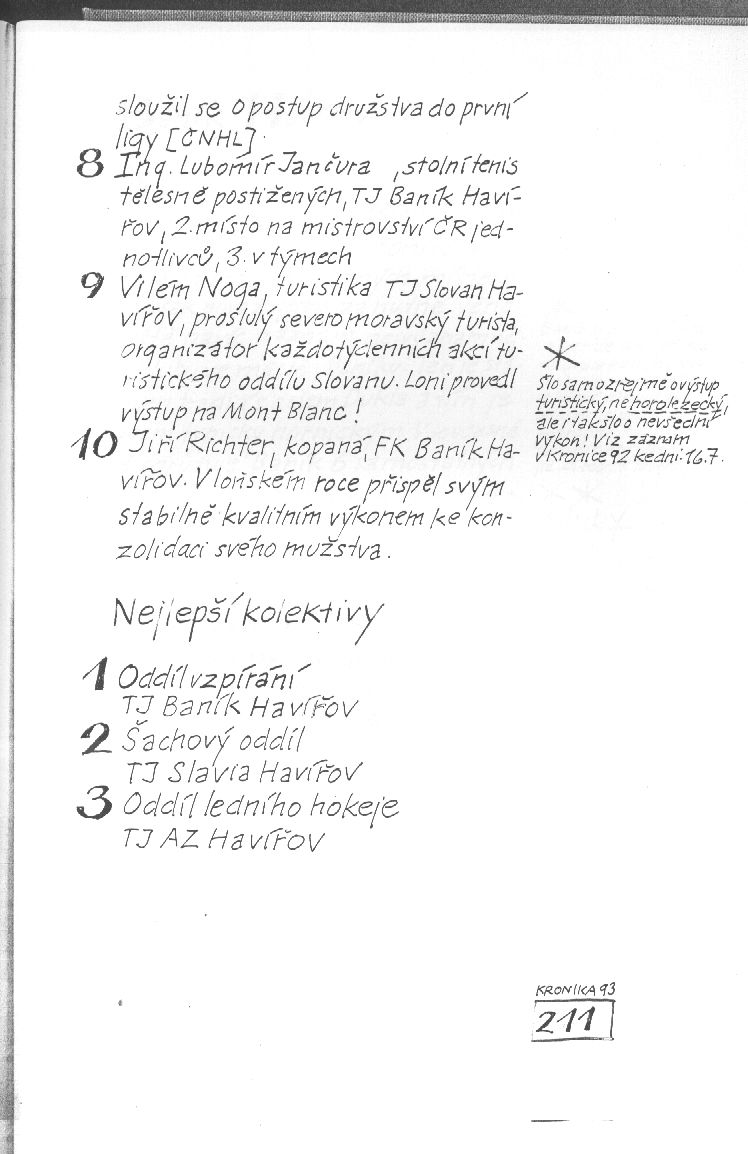 sloužil se o postup družstva do první
ligy [ČNHL].
8 Ing. Lubomír Jančura, stolní tenis
tělesně postižených, TJ Baník Haví-
řov, 2. místo na mistrovství ČR jed-
notlivců, 3. v týmech
9 Vilém Noga, turistika TJ Slovan Ha-
vířov, proslulý severomoravský turista,
organizátor každotýdenních akcí tu-
ristického oddílu Slovanu. Loni provedl
výstup na Mont Blanc!
10 Jiří Richter, kopaná, FK Baník Ha-
vířov. V loňském roce přispěl svým
stabilně kvalitním výkonem ke kon-
zolidaci svého mužstva.
*
Šlo samozřejmě o výstup
turistický, ne horolezecký,
ale i tak šlo o nevšední
výkon! Viz záznam
v Kronice 92 ke dni 16.7.
Nejlepší kolektivy
1 Oddíl vzpírání
TJ Baník Havířov
2 Šachový oddíl
TJ Slavia Havířov
3 Oddíl ledního hokeje
TJ AZ Havířov
KRONIKA 93
211